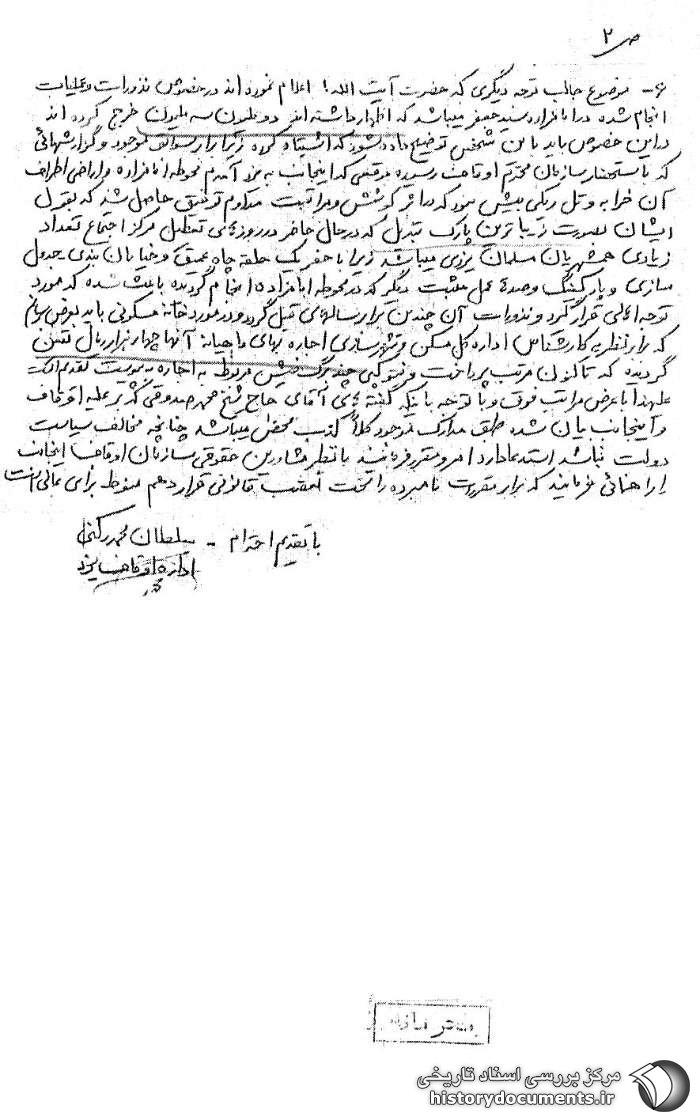 ص ۲
۶- موضوع جالب توجه دیگری که حضرت آیت الله! اعلام نموده اند در خصوص نذورات و عملیات
انجام شده در امامزاده سید جعفر میباشد که اظهار داشته اند دو میلیون سه میلیون خرج کرده اند
در این خصوص باید باین شخص توضیح داده شود که اشتباه کرده زیرا برابر سوابق موجود و گزارشهائی
که باستحضار سازمان محترم اوقاف رسیده موقعی که اینجانب به یزد آمدم محوطه امامزاده و اراضی اطراف
آن خرابه و تل ریگی بیش نبود که در اثر کوشش و مراقبت مداوم توفیق حاصل شد که بقول
ایشان بصورت زیباترین پارک تبدیل که در حال حاضر در روزهای تعطیل مرکز اجتماع تعداد
زیادی همشهریان مسلمان یزدی میباشد زیرا با حفر یک حلقه چاه عمیق و خیابان بندی جدول
سازی و پارکینگ و صدها عمل مثبت دیگر که در محوطه امامزاده انجام گردیده باعث شده که مورد
توجه اهالی قرار گیرد و نذورات آن چندین برابر سالهای قبل گردد و در مورد خانه مسکونی باید بعرض برسانم
که برابر نظریه کارشناس اداره کل مسکن و شهرسازی اجاره بهای ماهیانه آنها چهار هزار ریال تعیین
گردیده که تاکنون مرتب پرداخت و فتوکپی چند برگ فیش مربوط به اجاره به پیوست تقدیم است
علیهذا با عرض مراتب فوق و با توجه باینکه گفته های آقای حاج شیخ محمد صدوقی که بر علیه اوقاف
و اینجانب بیان شده طبق مدارک موجود کلاً کذب محض میباشد چنانچه مخالف سیاست
دولت نباشد استدعا دارد امر و مقرر فرمایند با نظر مشاورین حقوقی سازمان اوقاف اینجانب
را راهنمائی فرمایند که برابر مقررات نامبرده را تحت تعقیب قانونی قرار دهم منوط برای عالی است
با تقدیم احترام -
اداره اوقاف یزد
محرمانه
مرکز بررسی اسناد تاریخی
historydocuments.ir